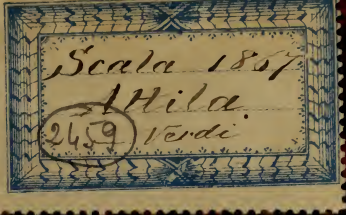 Scala 1867
Attila
2459 Verdi